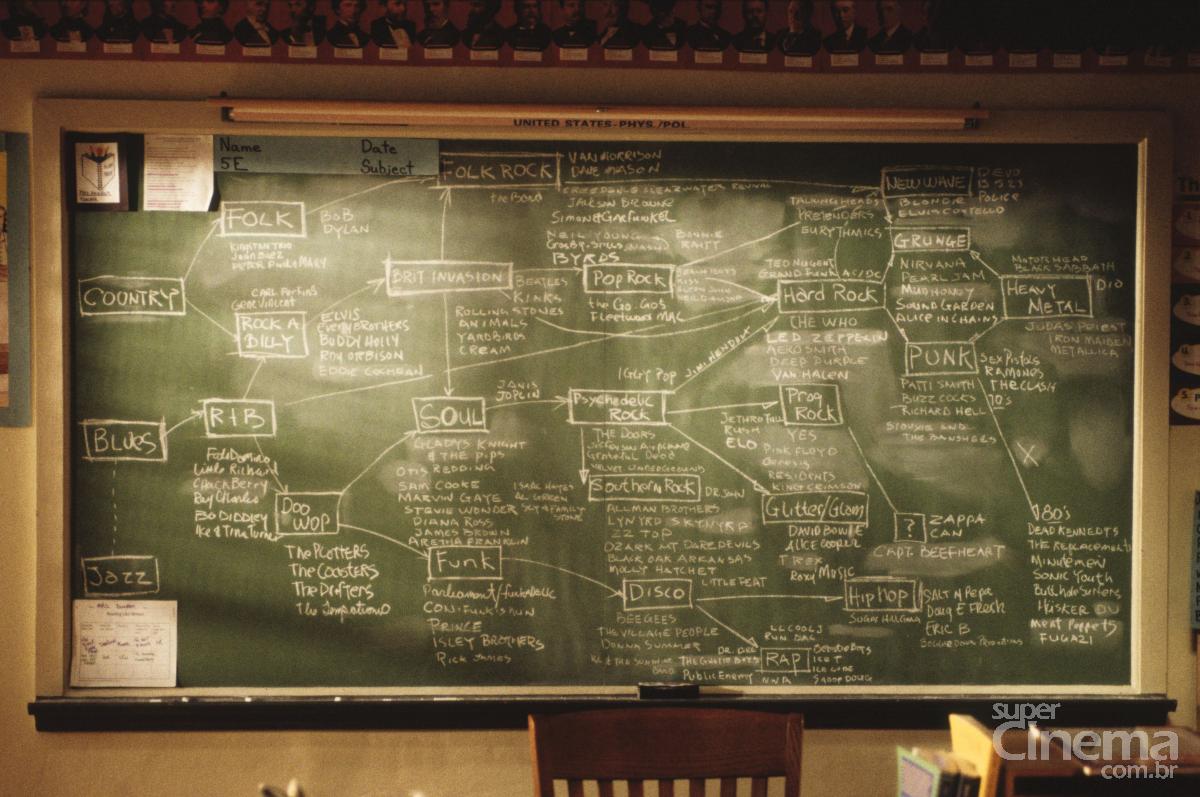 UNITED STATES-PHYS./POL.
Name
5E
Date
Subject
FOLK ROCK
VAN MORRISON
DAVE MASON
The Band
CREEDENCE CLEARWATER REVIVAL
JACKSON BROWNE
Simon & Garfunkel
NEIL YOUNG
Crosby, Stills, Nash
BYRDS
BONNIE
RAITT
NEW WAVE
DEVO
B 52's
POLICE
TALKING HEADS
PRETENDERS
EURYTHMICS
BLONDIE
ELVIS COSTELLO
FOLK
BOB
DYLAN
KINGSTON TRIO
JOAN BAEZ
PETER PAUL & MARY
COUNTRY
CARL PERKINS
GENE VINCENT
ROCK A
BILLY
ELVIS
EVERLY BROTHERS
BUDDY HOLLY
ROY ORBISON
EDDIE COCHRAN
BRIT INVASION
BEATLES
KINKS
ROLLING STONES
ANIMALS
YARDBIRDS
CREAM
POP ROCK
BEACH BOYS
KISS
ELTON JOHN
NEIL DIAMOND
the Go Gos
Fleetwood MAC
TED NUGENT
GRAND FUNK
AC/DC
HARD ROCK
THE WHO
LED ZEPPELIN
AEROSMITH
DEEP PURPLE
VAN HALEN
GRUNGE
NIRVANA
PEARL JAM
MUDHONEY
SOUND GARDEN
ALICE IN CHAINS
MOTORHEAD
BLACK SABBATH
HEAVY
METAL
DIO
JUDAS PRIEST
IRON MAIDEN
METALLICA
PUNK
SEX PISTOLS
RAMONES
THE CLASH
70's
PATTI SMITH
BUZZCOCKS
RICHARD HELL
SIOUXSIE AND
THE BANSHEES
X
BLUES
R+B
Fats Domino
Little Richard
Chuck Berry
Ray Charles
BO DIDDLEY
Ike & Tina Turner
SOUL
JANIS
JOPLIN
GLADYS KNIGHT
& THE PIPS
OTIS REDDING
SAM COOKE
MARVIN GAYE
STEVIE WONDER
DIANA ROSS
JAMES BROWN
ARETHA FRANKLIN
ISAAC HAYES
AL GREEN
SLY & FAMILY
STONE
IGGY POP
JIMI HENDRIX
Psychedelic
ROCK
THE DOORS
Jefferson Airplane
Grateful Dead
VELVET UNDERGROUND
Southern ROCK
DR JOHN
ALLMAN BROTHERS
LYNYRD SKYNYRD
ZZ TOP
OZARK MT. DAREDEVILS
BLACK OAK ARKANSAS
MOLLY HATCHET
Prog
ROCK
JETHRO TULL
RUSH
ELO
YES
PINK FLOYD
Genesis
RESIDENTS
KING CRIMSON
Glitter/Glam
DAVID BOWIE
ALICE COOPER
T REX
Roxy Music
?
ZAPPA
CAN
CAPT. BEEFHEART
80's
DEAD KENNEDYS
THE Replacements
Minutemen
SONIC YOUTH
Butthole Surfers
HÜSKER DU
Meat Puppets
FUGAZI
DOO
WOP
The PLOTTERS
The COASTERS
The Drifters
The Temptations
JAZZ
Funk
Parliament/funkadelic
CON-FUNK-SHUN
PRINCE
ISLEY BROTHERS
Rick James
DISCO
LITTLE FEAT
BEEGEES
THE VILLAGE PEOPLE
DONNA SUMMER
KC & THE SUNSHINE
BAND
HIP HOP
SUGAR HILL GANG
SALT N PEPA
Doug E Fresh
ERIC B
Boogie Down Productions
RAP
LL COOL J
RUN DMC
DR. DRE
THE GHETTO BOYS
PUBLIC ENEMY
NWA
BEASTIE BOYS
ICE T
ICE CUBE
SNOOP DOGG
super
Cinema
com.br